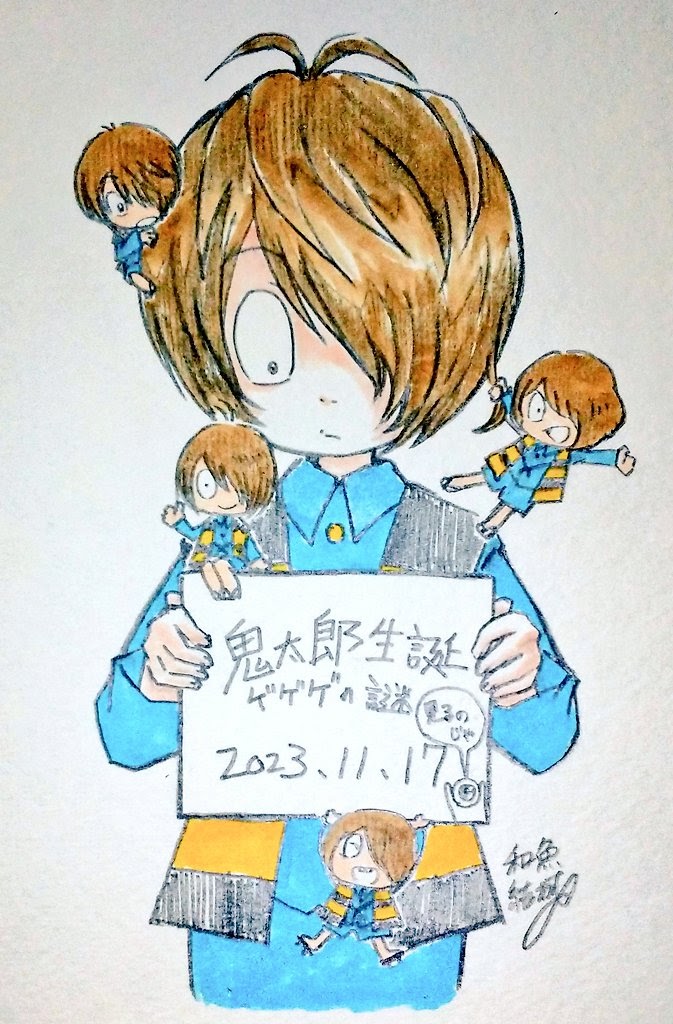 鬼太郎生誕
ゲゲゲの謎
見るの
じゃ
2023.11.17